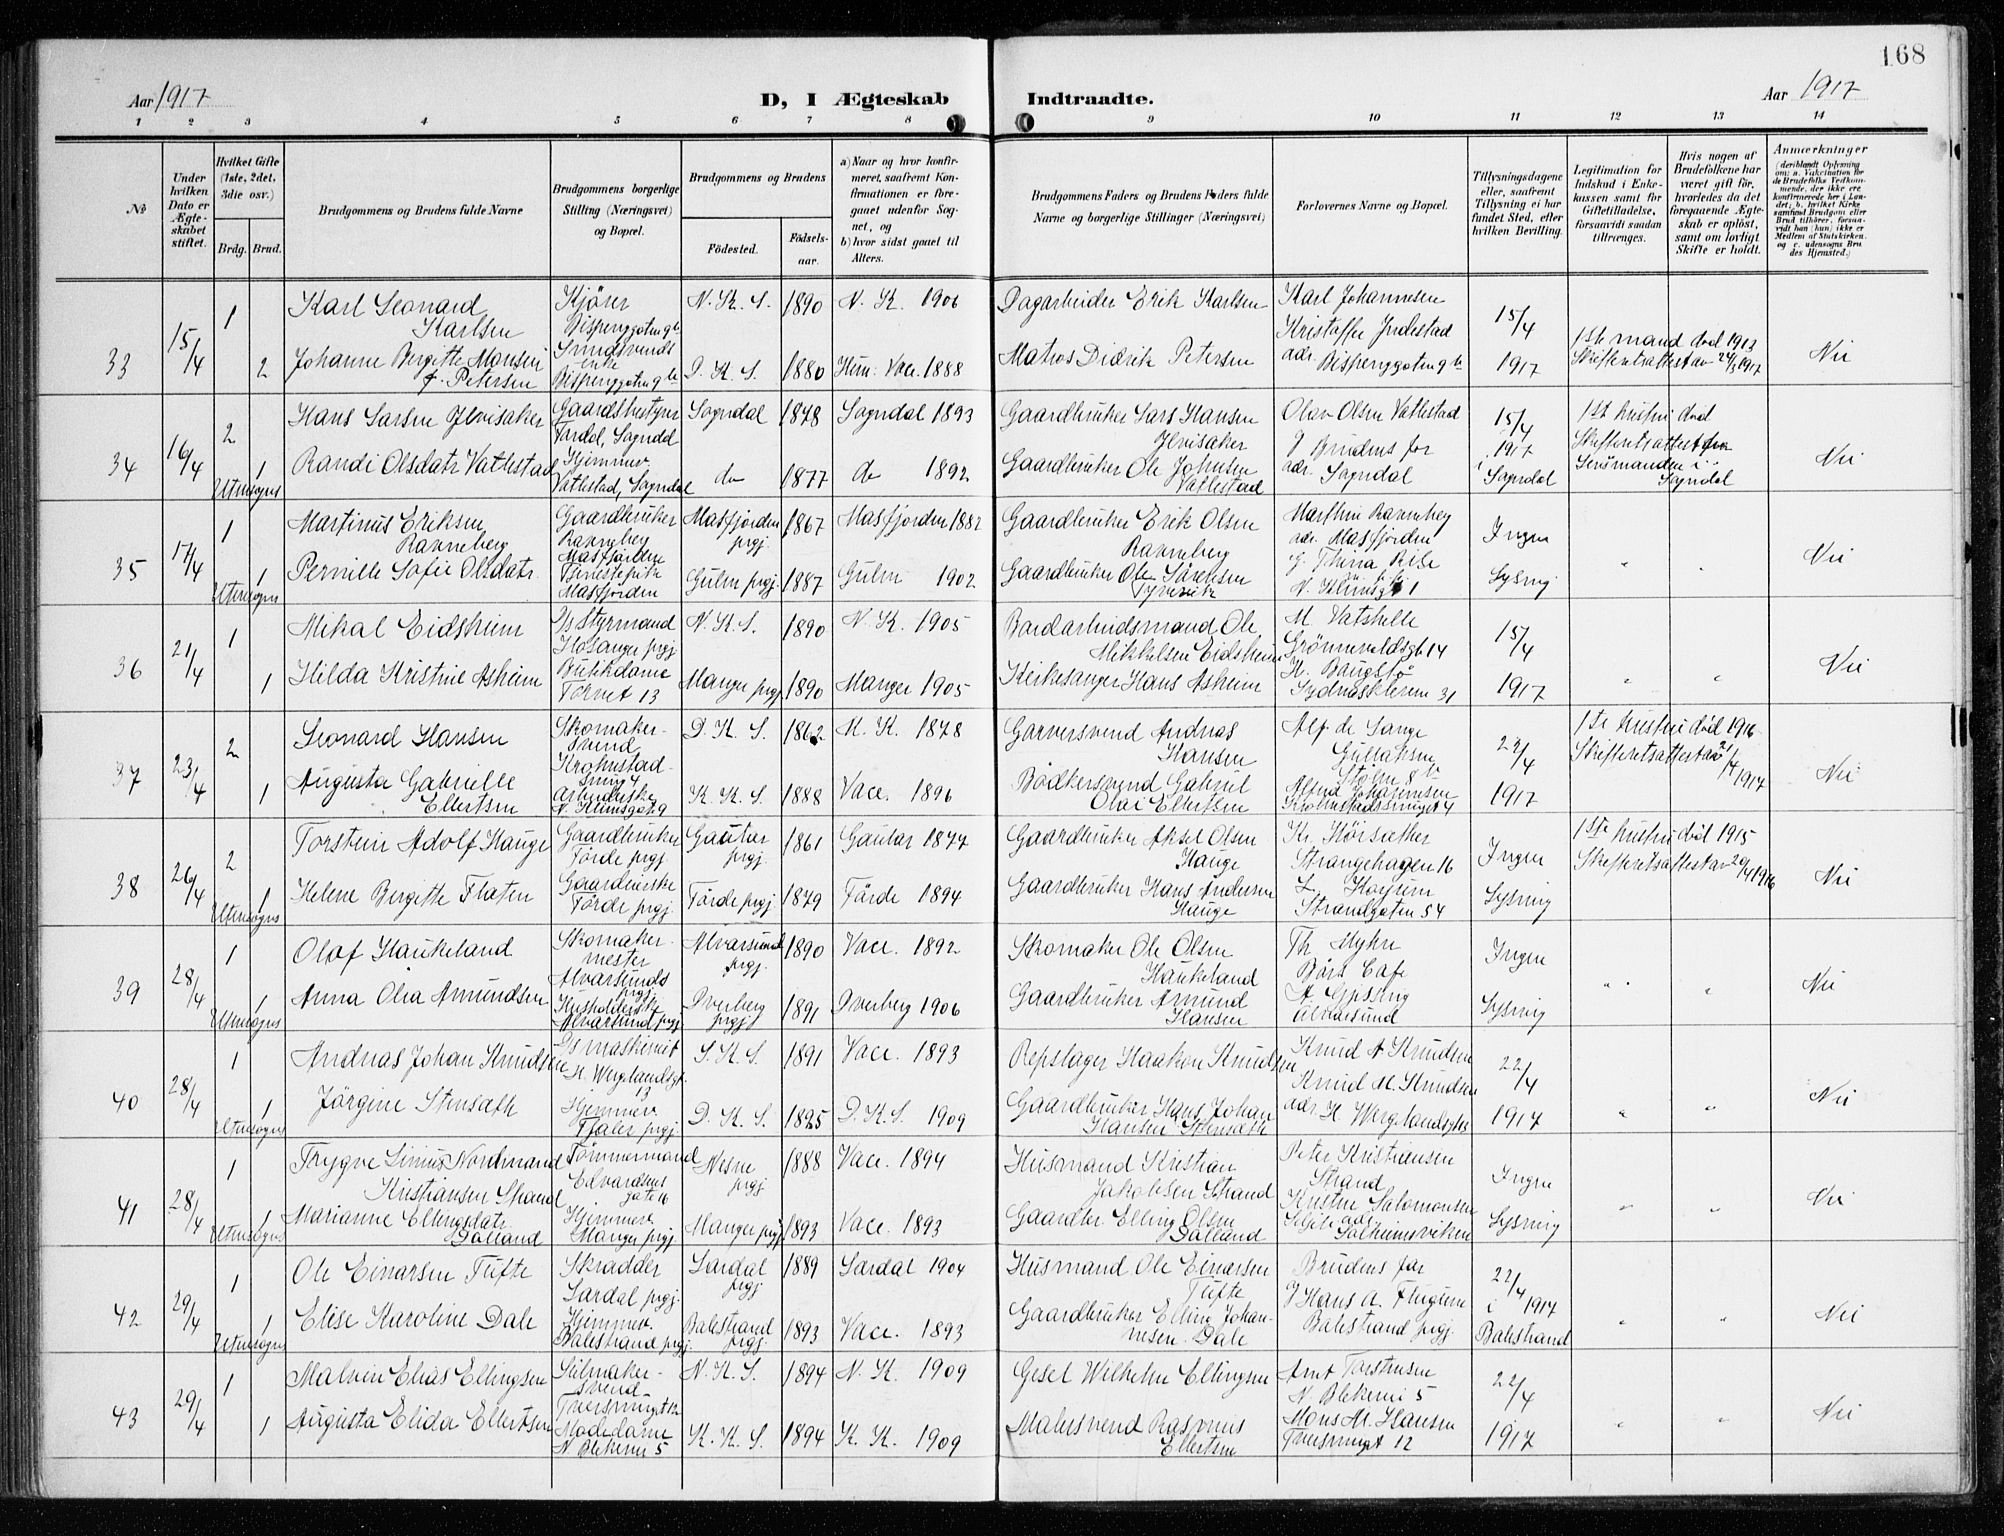 168
Aar 1917
D, I Ægteskab Indtraadte.
Aar 1917
1 2 3 4 5 6 7 8 9 10 11 12 13 14
№
Under hvilken Dato er Ægteskabet stiftet.
Hvilket Gifte (1ste, 2det, 3die osv.)
Brdg. Brud.
Brudgommens og Brudens fulde Navne
Brudgommens borgerlige Stilling (Næringsvei) og Bopæl.
Brudgommens og Brudens
Födested.
Födsels-aar.
a) Naar og hvor konfirmeret, saafremt Konfirmationen er foregaaet udenfor Sognet, og
b) hvor sidst gaaet til Alters.
Brudgommens Faders og Brudens Faders fulde Navne og borgerlige Stillinger (Næringsvei)
Forlovernes Navne og Bopæl.
Tillysningsdagene eller, saafremt Tillysning ei har fundet Sted, efter hvilken Bevilling.
Legitimation for Indskud i Enkekassen samt for Giftetilladelse, forsaavidt saadan tiltrænges.
Hvis nogen af Brudefolkene har været gift för, hvorledes da det foregaaende Ægteskab er oplöst, samt om lovligt Skifte er holdt.
Anmærkninger
33 15/4 1 Karl Leonard Karlsen Kjører Bispenggaten 9b N. K. S. 1890 N. K. 1906 Dagarbeider Erik Karlsen Karl Johannesen 15/4
2 Johanne Bergitte Monsen f. Petersen enke Bispenggaten 9b D. K. S. 1880 Vacc. 1888 Matros Didrik Petersen Kristoffer Indestad adr. Bispenggaten 9b 1917 1ste mand död 1913 Skifteretsattest av 24/3 1917 Nei
34 16/4 2 Hans Larsen Ylvisaker Gaardsbestyrer Sogndal Sogndal 1878 Sogndal 1893 Gaardbruker Lars Hansen Ylvisaker Olav Olsen Vatlestad 15/4 1917 1ste hustru död
1 Randi Olsdatr Vatlestad Hjemmev. Vatlestad, Sogndal do 1877 do 1892 Gaardbruker Ole Johnsen Vatlestad Brudens far adr. Sogndal i Sogndal Skifteretsattest fra Lensmanden i Sogndal Nei
Utensogns
35 17/4 1 Martinus Eriksen Ravneberg Gaardbruker Ravneberg Masfjorden Masfjorden prgj. 1867 Masfjorden 1882 Gaardbruker Erik Olsen Ravneberg Ravneberg adr. Masfjorden Ingen
1 Pernille Sofie Olsdatr. Tjenestepike Masfjorden Gulen prgj. 1887 Gulen 1902 Gaardbruker Ole Sörensen Lysning " " Nei
Utensogns
36 21/4 1 Mikal Eidsheim Styrmand Hosanger prgj N. K. S. 1890 N. K. 1905 Bordarbeidsmand Ole Mikkelsen Eidsheim M. Vatshelle 15/4
1 Hilda Kristine Asheim Butikdame Tornet 13 Manger prgj 1890 Manger 1905 Kirkesanger Hans Asheim H. Baugstö Sydneskleven 31 1917 " " Nei
37 23/4 2 Leonard Hansen Skomakersvend D. K. S. 1862 M. K. 1878 Garversvend Andreas Hansen Alf de Lange Gullaksen Stölen 8b 22/4 1ste hustru död 1916
1 Augusta Gabrielle Ellertsen K. K. S. 1888 Vacc. 1896 Bödkersvend Gabriel Olai Ellertsen Alfred Johannesen 1917 Skifteretsattest av 21/4 1917 Nei
38 26/4 2 Torstein Adolf Hauge Gaardbruker Förde prgj. Gaular prgj. 1861 Gaular 1877 Gaardbruker Aksel Olsen Hauge Strangehagen 16 Ingen 1ste hustru död 1915
1 Helene Bergitte Flaten Förde prgj. Förde prgj. 1879 Förde 1894 Gaardbruker Hans Andersen Hauge Strandgaten 54 Lysning Skifteretsattest av 20/4 1916 Nei
Utensogns
39 28/4 1 Olaf Haukeland Skomakermester Alversunds prgj Alversund prgj. 1890 Vacc. 1892 Skomaker Ole Olsen Haukeland Th. Myhre Börs Cafe Ingen
1 Anna Olea Amundsen Alversund prgj. Dverberg prgj. 1891 Dverberg 1906 Gaardbruker Amund Hansen Alversund Lysning " " Nei
Utensogns
40 28/4 1 Andreas Johan Knudsen H. Wergelandsgt. 13 S. K. S. 1891 Vacc. 1893 Repslager Haakon Knudsen Knud A Knudsen 22/4
1 Jörgine Stensæth Hjemmev. Fjaler prgj. D. K. S. 1895 D. K. S. 1909 Gaardbruker Hans Johan Hansen Stensæth Knud M. Knudsen 1917 " " Nei
Utensogns
41 28/4 1 Trygve Linius Nordmand Kristiansen Strand Tömmermand Edvardsens gate 16 Nesne prgj 1888 Vacc. 1894 Husmand Kristian Jakobsen Strand Peter Kristiansen Strand Ingen
1 Marianne Ellingsdatr. Dalland Hjemmev. Manger prgj. Manger prgj. 1893 Vacc. 1893 Gaardbr. Elling Olsen Dalland Salomonsen Solheimsviken Lysning " " Nei
Utensogns
42 29/4 1 Ole Einarsen Tufte Skrædder Lærdal prgj. Lærdal prgj 1889 Lærdal 1904 Husmand Ole Einarsen Tufte Brudens far 22/4 1917
1 Elise Karoline Dale Hjemmev. Balestrand prgj. Balestrand prgj. 1893 Vacc. 1893 Gaardbruker Johannesen Dale Hans A. Balestrand prgj. i Balestrand " " Nei
Utensogns
43 29/4 1 Malvin Elias Ellingsen N. K. S. 1894 N. K. 1909 Gesel Wilhelm Ellingsen Arnt Torstensen N. Blekevei 5 22/4
1 Augusta Elida Ellertsen Modedame N. Blekevei 5 K. K. S. 1894 K. K. 1909 Malersvend Rasmus Ellertsen Mons M. Hansen 1917 " " Nei